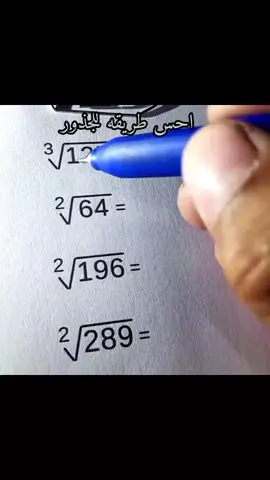 احس طريقه للجذور
²√64 =
²√196 =
²√289 =